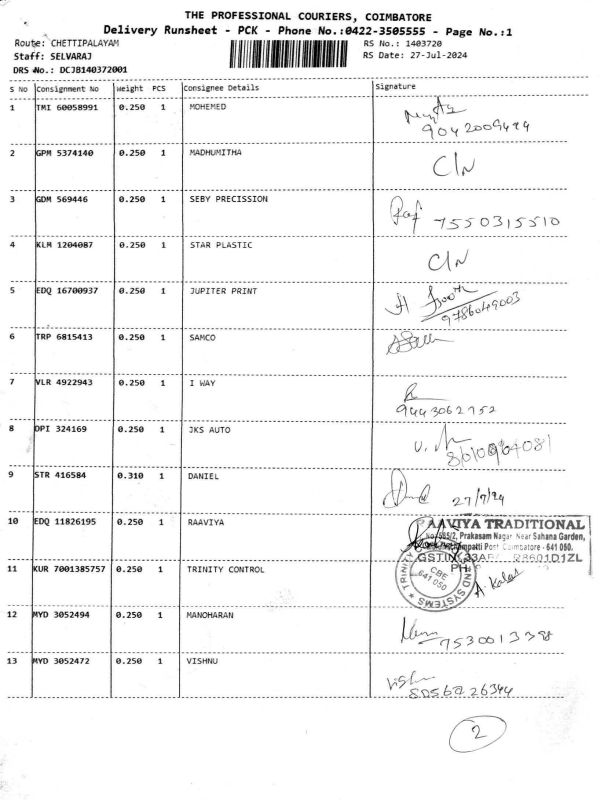 THE PROFESSIONAL COURIERS, COIMBATORE
Delivery Runsheet - PCK - Phone No.:0422-3505555 - Page No.:1
Route: CHETTIPALAYAM RS No.: 1403720
Staff: SELVARAJ RS Date: 27-Jul-2024
DRS No.: DCJB140372001
S No Consignment No Weight PCS Consignee Details Signature
1 TMI 60058991 0.250 1 MOHEMED
2 GPM 5374140 0.250 1 MADHUMITHA C/N
3 GDM 569446 0.250 1 SEBY PRECISSION 7550315510
4 KLM 1204087 0.250 1 STAR PLASTIC C/N
5 EDQ 16700937 0.250 1 JUPITER PRINT
9786049003
6 TRP 6815413 0.250 1 SAMCO
7 VLR 4922943 0.250 1 I WAY
9443062752
8 DPI 324169 0.250 1 JKS AUTO
9 STR 416584 0.310 1 DANIEL 27/7/24
10 EDQ 11826195 0.250 1 RAAVIYA RAAVIYA TRADITIONAL
Prakasam Nagar, Near Sahana Garden,
Post, Coimbatore - 641 050.
GSTIN
PH
11 KUR 7001385757 0.250 1 TRINITY CONTROL
TRINITY AND SYSTEMS
CBE
641 050
12 MYD 3052494 0.250 1 MANOHARAN
7530013398
13 MYD 3052472 0.250 1 VISHNU
2